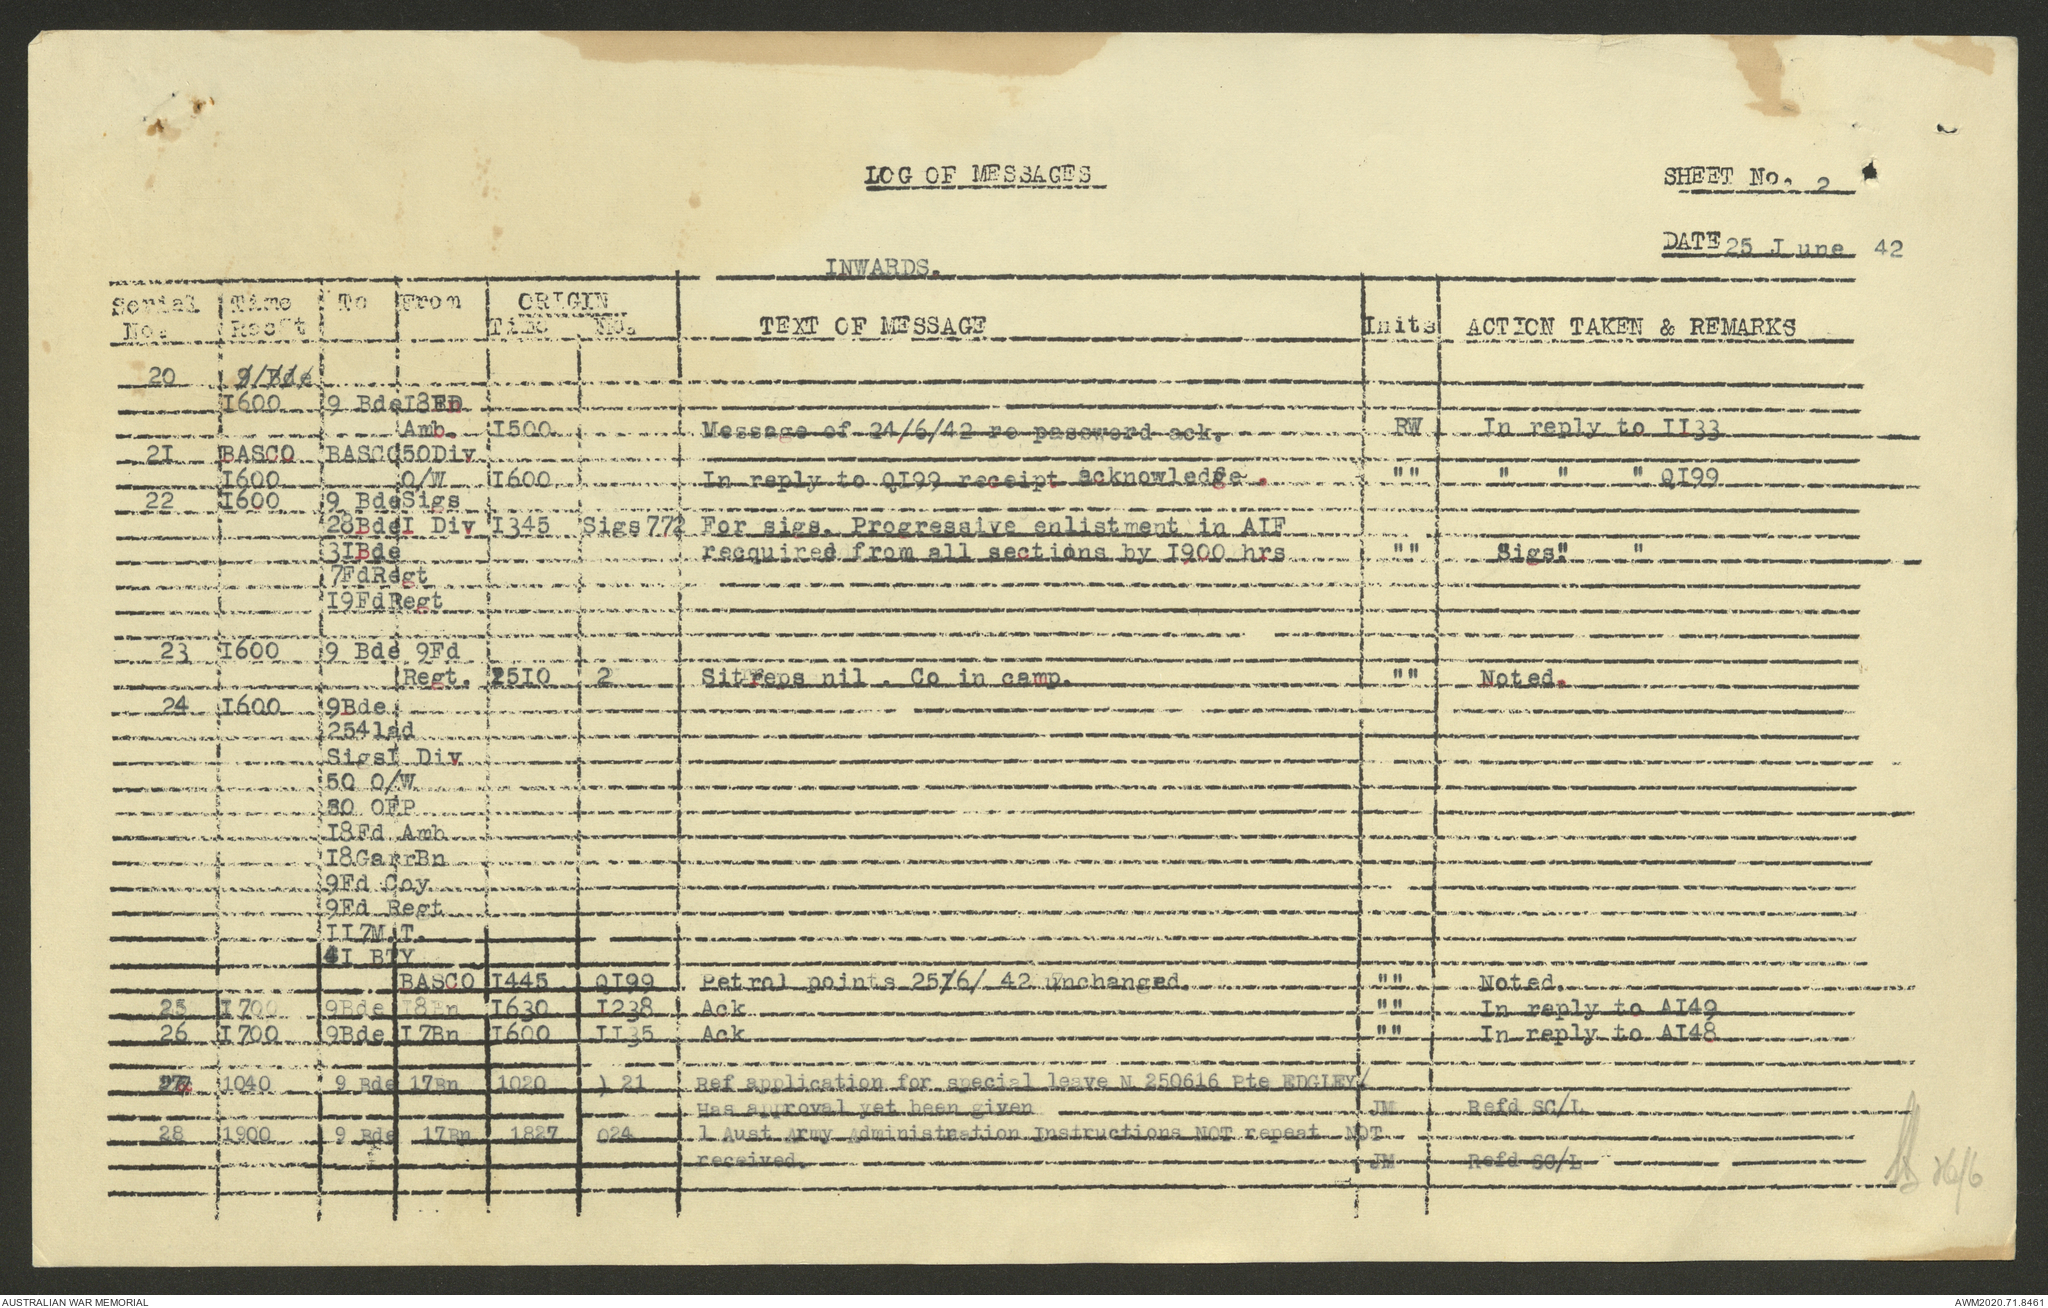 LOG OF MESSAGES
SHEET No. 2
DATE 25 June 42
INWARDS.
Serial No. Time Rec't To From ORIGIN Time No. TEXT OF MESSAGE Inits ACTION TAKEN & REMARKS
20 9/Bde
I600 9 Bde I8FD
Amb. I500 Message of 24/6/42 re password ack. RW In reply to II33
2I BASCO BASCO 50Div
I600 O/W I600 In reply to QI99 receipt acknowledge . "" " " " QI99
22 I600 9 Bde Sigs
28Bde I Div I345 Sigs 772 For sigs. Progressive enlistment in AIF
3IBde recquired from all sections by I900 hrs "" "Sigs" "
7FdRegt
I9FdRegt
23 I600 9 Bde 9Fd
Regt. I5I0 2 Sitreps nil . Co in camp. "" Noted.
24 I600 9Bde
254lad
SigsI Div
50 O/W
50 OFP
I8Fd Amb
I8GarrBn
9Fd Coy
9Fd Regt
II7M.T.
4I BTY
BASCO I445 QI99 Petrol points 25/6/ 42 unchanged. "" Noted.
25 I700 9Bde I8Bn I630 I238 Ack "" In reply to AI49
26 I700 9Bde I7Bn I600 II35 Ack "" In reply to AI48
27 1040 9 Bde 17Bn 1020 ) 21 Ref application for special leave N 250616 Pte EDGLEY/
Has approval yet been given JM Refd SC/L
28 1900 9 Bde 17Bn 1827 024 1 Aust Army Administration Instructions NOT repeat NOT
received. JM Refd SC/L